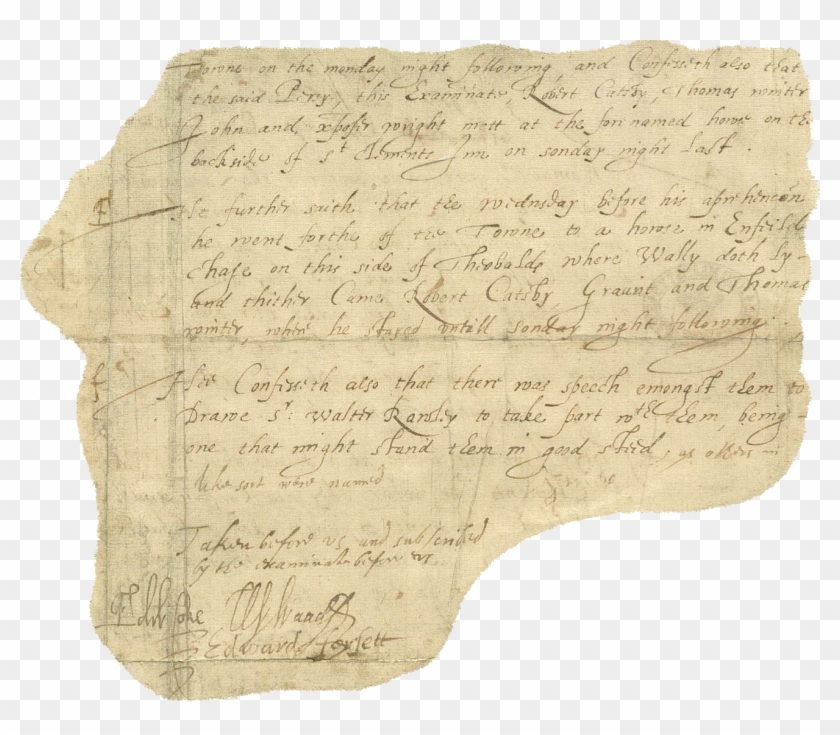 Towne on the monday night following, and Confesseth also that
the said Percy, this Examinate, Robert Catsby, Thomas winter
John and xpofer wright mett at the forenamed howse on the
backside of St Clements Inn on sonday night last.
He further saith that the wednsday before his aprehencon
he went forthe of the Towne to a howse in Enfeild
chase on this side of Theobalds where Wally doth ly-
and thither Came Robert Catsby, Graunt and Thomas
winter, where he stayed untill sonday night following.
Hee Confesseth also that there was speech emongst them to
Drawe Sr. Walter Rawley to take part wth them, being
one that might stand them in good steed, as others in
like sort were named
Taken before us and subscribed
by the examinate before us
Edw Coke W Waad
Edward Forsett